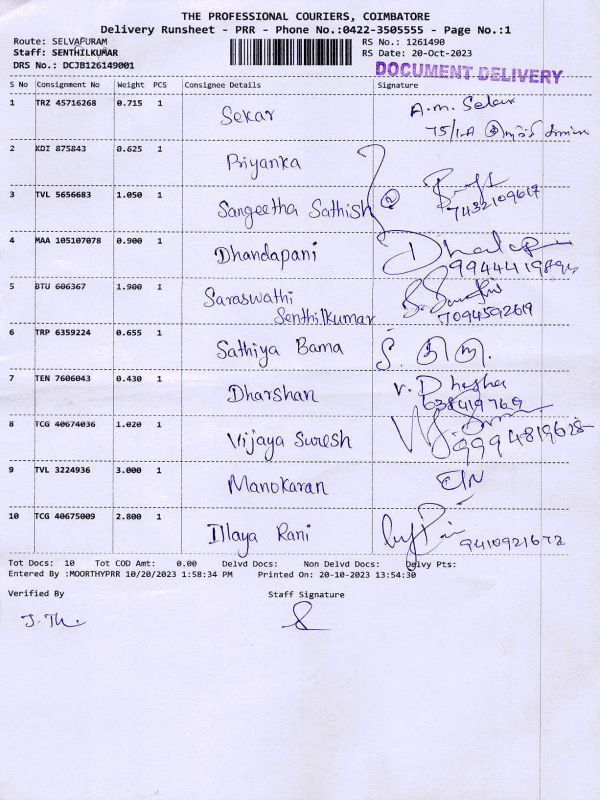 THE PROFESSIONAL COURIERS, COIMBATORE
Delivery Runsheet - PRR - Phone No.:0422-3505555 - Page No.:1
Route: SELVAPURAM RS No.: 1261490
Staff: SENTHILKUMAR RS Date: 20-Oct-2023
DRS No.: DCJB126149001 DOCUMENT DELIVERY
S No Consignment No Weight PCS Consignee Details Signature
1 TRZ 45716268 0.715 1 Sekar A.m. Sekar
75/1-A
2 KDI 875843 0.625 1 Priyanka
3 TVL 5656683 1.050 1 Sangeetha Sathish
7432109617
4 MAA 105107078 0.900 1 Dhandapani
5 BTU 606367 1.900 1 Saraswathi
Senthilkumar 7094592619
6 TRP 6359224 0.655 1 Sathiya Bama
7 TEN 7606043 0.430 1 Dharshan V. Dhasha
638419769
8 TCG 40674036 1.020 1 Vijaya Suresh
9994819628
9 TVL 3224936 3.000 1 Manokaran
10 TCG 40675009 2.800 1 Illaya Rani
9410921672
Tot Docs: 10 Tot COD Amt: 0.00 Delvd Docs: Non Delvd Docs: Delvy Pts:
Entered By :MOORTHYPRR 10/20/2023 1:58:34 PM Printed On: 20-10-2023 13:54:30
Verified By Staff Signature
J. Th.